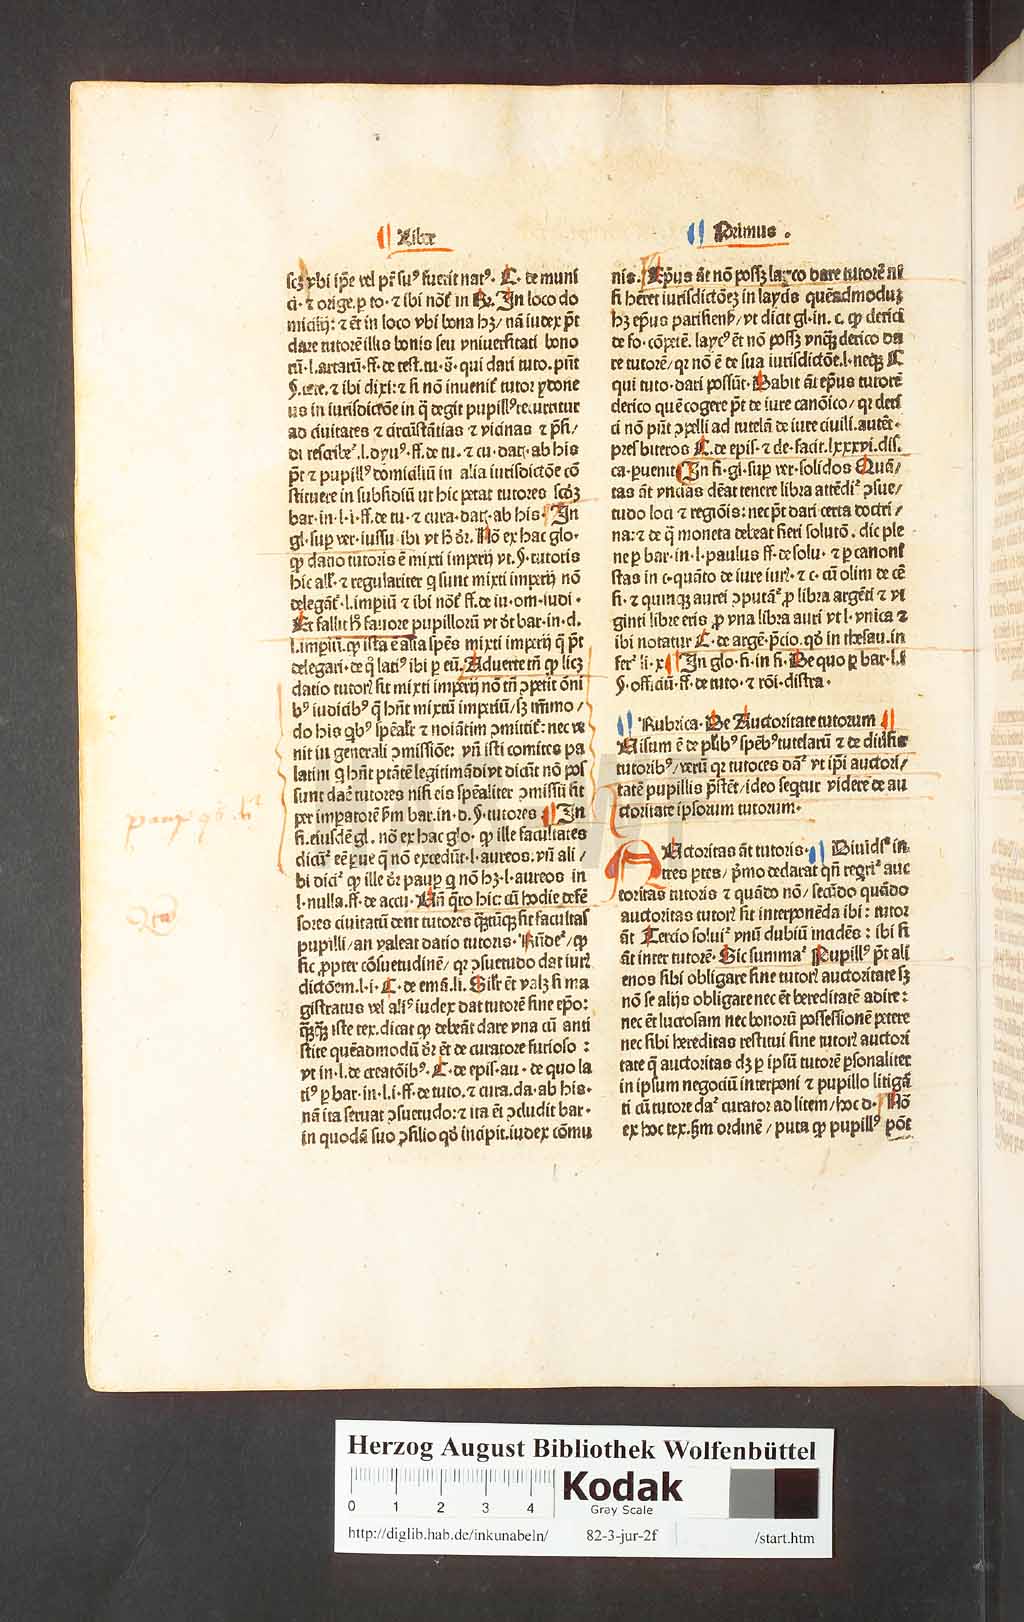 Liber
Primus .
scꝫ vbi ip̄e vel pr̄ suꝰ fuerit natꝰ. C. de muni
ci. ⁊ orige. p to. ⁊ ibi nōt̄ in In loco do
micilij: ⁊ ēt in loco vbi bona hꝫ/ nā iudex pt̄
dare tutorē illis bonis seu vniuersitati bono
rū. l. ff. de test. tu. §. qui dari tuto. pn̄t
⁊ ibi dixi: ⁊ si nō inuenit̄ tutor ydone
us in iurisdictōe in q̄ degit pupillꝰ recurritur
ad ciuitates ⁊ circūstātias ⁊ vicinas ⁊ p̄si/
di rescribet̄. l. diuꝰ. ff. de tu. ⁊ cu. dat̄. ab his
pt̄ ⁊ pupillꝰ domiciliū in alia iurisdictōe cō
stituere in subsidiū ut hic petat tutores scd̄ꝫ
bar. in. l. i. ff. de tu. ⁊ cura. dat̄. ab his. In
gl. sup ver. iussu. ibi vt Nō ex hac glo.
ꝙ datio tutoris ē mixti imperij vt. §. tutoris
hic all̄. ⁊ regulariter q̄ sunt mixti imperij nō
delegāt̄. l. imꝑiū ⁊ ibi nōt̄ ff. de iu. om. iudi.
Et fallit fauore pupillorū vt bar. in. d.
l. imꝑiū. ꝙ ista ē alia spēs mixti imperij q̄ pt̄
delegari. de q̄ latiꝰ ibi p eū. Aduerte tn̄ ꝙ licꝫ
datio tutor̄ sit mixti imperij nō tn̄ ↄpetit ōni
bꝰ iudicibꝰ q̄ hn̄t mixtū imꝑiū/ sꝫ īmmo/
do his qͥbꝰ spēalr̄ ⁊ noīatim ↄmittit̄: nec ve
nit in generali ↄmissiōe: vn̄ isti comites pa
latini q̄ hn̄t ptātē legitimādi vt dicūt nō pos
sunt dare tutores nisi eis spēaliter ↄmissū sit
per imꝑatorē bar. in. d. §. tutores In
fi. eiusdē gl. nō ex hac glo. ꝙ ille facultates
dicūt̄ eē q̄ nō excedūt. l. aureos. vn̄ ali/
bi dicit̄ ꝙ ille paup q̄ nō hꝫ. l. aureos in
l. nulla. ff. de accu. Un̄ q̄ro hic: cū hodie defē
sores ciuitatū dent tutores sit facultas
pupilli/ an valeat datio tutoris. Rn̄det̄/ ꝙ
sic ꝓpter cōsuetudinē/ qꝛ ↄsuetudo dat iur̄
dictōem. l. i. C. de emā. li. Silr̄ ēt valꝫ si ma
gistratus vel aliꝰ iudex dat tutorē sine ep̄o:
iste tex. dicat ꝙ debeāt dare vna cū anti
stite quēadmodū ēt de curatore furioso:
vt in. l. de creatōibꝰ. C. de epis. au. de quo la
tiꝰ p bar. in. l. i. ff. de tuto. ⁊ cura. da. ab his.
nā ita seruat ↄsuetudo: ⁊ ita ēt ↄcludit bar.
in quodā suo ↄsilio qd̄ incipit. iudex cōmu
nis. Ep̄us āt nō possꝫ layco dare tutorē ni
si hēret iurisdictōeꝫ in laycis quēadmoduꝫ
hꝫ ep̄us parisiens̄/ vt dicit gl. in. c. ꝙ clerici
de fo. cōpetē. laycꝰ ēt nō possꝫ clerico da
re tutorē/ qꝛ nō ē de sua iurisdictōe. l. neqꝫ C
qui tuto. dari possūt. Dabit āt ep̄us tutorē
clerico quē cogere pt̄ de iure canōico/ qꝛ cleri
ci nō pn̄t ↄpelli ad tutelā de iure ciuili. autēt.
presbiteros C. de epis. ⁊ cle. facit. lxxxvi. dis.
ca. ꝑuenit In fi. gl. sup ver. solidos Quā/
tas āt vncias debeat tenere libra attēdit̄ ↄsue/
tudo loci ⁊ regiōis: nec pt̄ dari certa doctri/
na: ⁊ de q̄ moneta debeat fieri solutō. dic ple
ne p bar. in. l. paulus ff. de solu. ⁊ p canoni
stas in c. quāto de iure iur̄. ⁊ c. cū olim de cē
si. ⁊ quinqꝫ aurei ↄputāt̄ ꝓ libra argēti ⁊ vi
ginti libre eris ꝓ vna libra auri vt l. vnica ⁊
ibi notatur C. de argē. p̄cio. qd̄ in thesau. in
fer̄ li. x. In glo. fi. in fi. De quo p bar. l. i
§. officiū. ff. de tuto. ⁊ rōi. distra.
Rubrica. De Auctoritate tutorum
Uisum ē de pluribꝰ spēbꝰ tutelarū ⁊ de diuersis
tutoribꝰ/ verū qꝛ tutores dāt̄ vt ip̄i auctori/
tatē pupillis p̄stēt/ ideo seqͥtur videre de au
ctoritate ipsorum tutorum.
Auctoritas āt tutoris. Diuidit̄ in
tres ptes/ pͥmo declarat qn̄ regrit̄ auc
toritas tutoris ⁊ quādo nō/ secūdo quādo
auctoritas tutor̄ sit interponēda ibi: tutor
āt Tercio soluit̄ vnū dubiū incidēs: ibi si
āt inter tutorē. Sic summat̄ Pupillꝰ pt̄ ali
enos sibi obligare sine tutor̄ auctoritate sꝫ
nō se alijs obligare nec ēt hereditatē adire:
nec ēt lucrosam nec bonorū possessionē petere
nec sibi hereditas restitui sine tutor̄ auctori
tate q̄ auctoritas dꝫ p ipsū tutorē ꝑsonaliter
in ipsum negociū interponi ⁊ pupillo litigā
ti cū tutore dat̄ curator ad litem/ hoc d. Nō
ex hoc tex. ordinē/ puta ꝙ pupillꝰ pōt
Herzog August Bibliothek Wolfenbüttel
0 1 2 3 4
Kodak
Gray Scale
http://diglib.hab.de/inkunabeln/ 82-3-jur-2f /start.htm